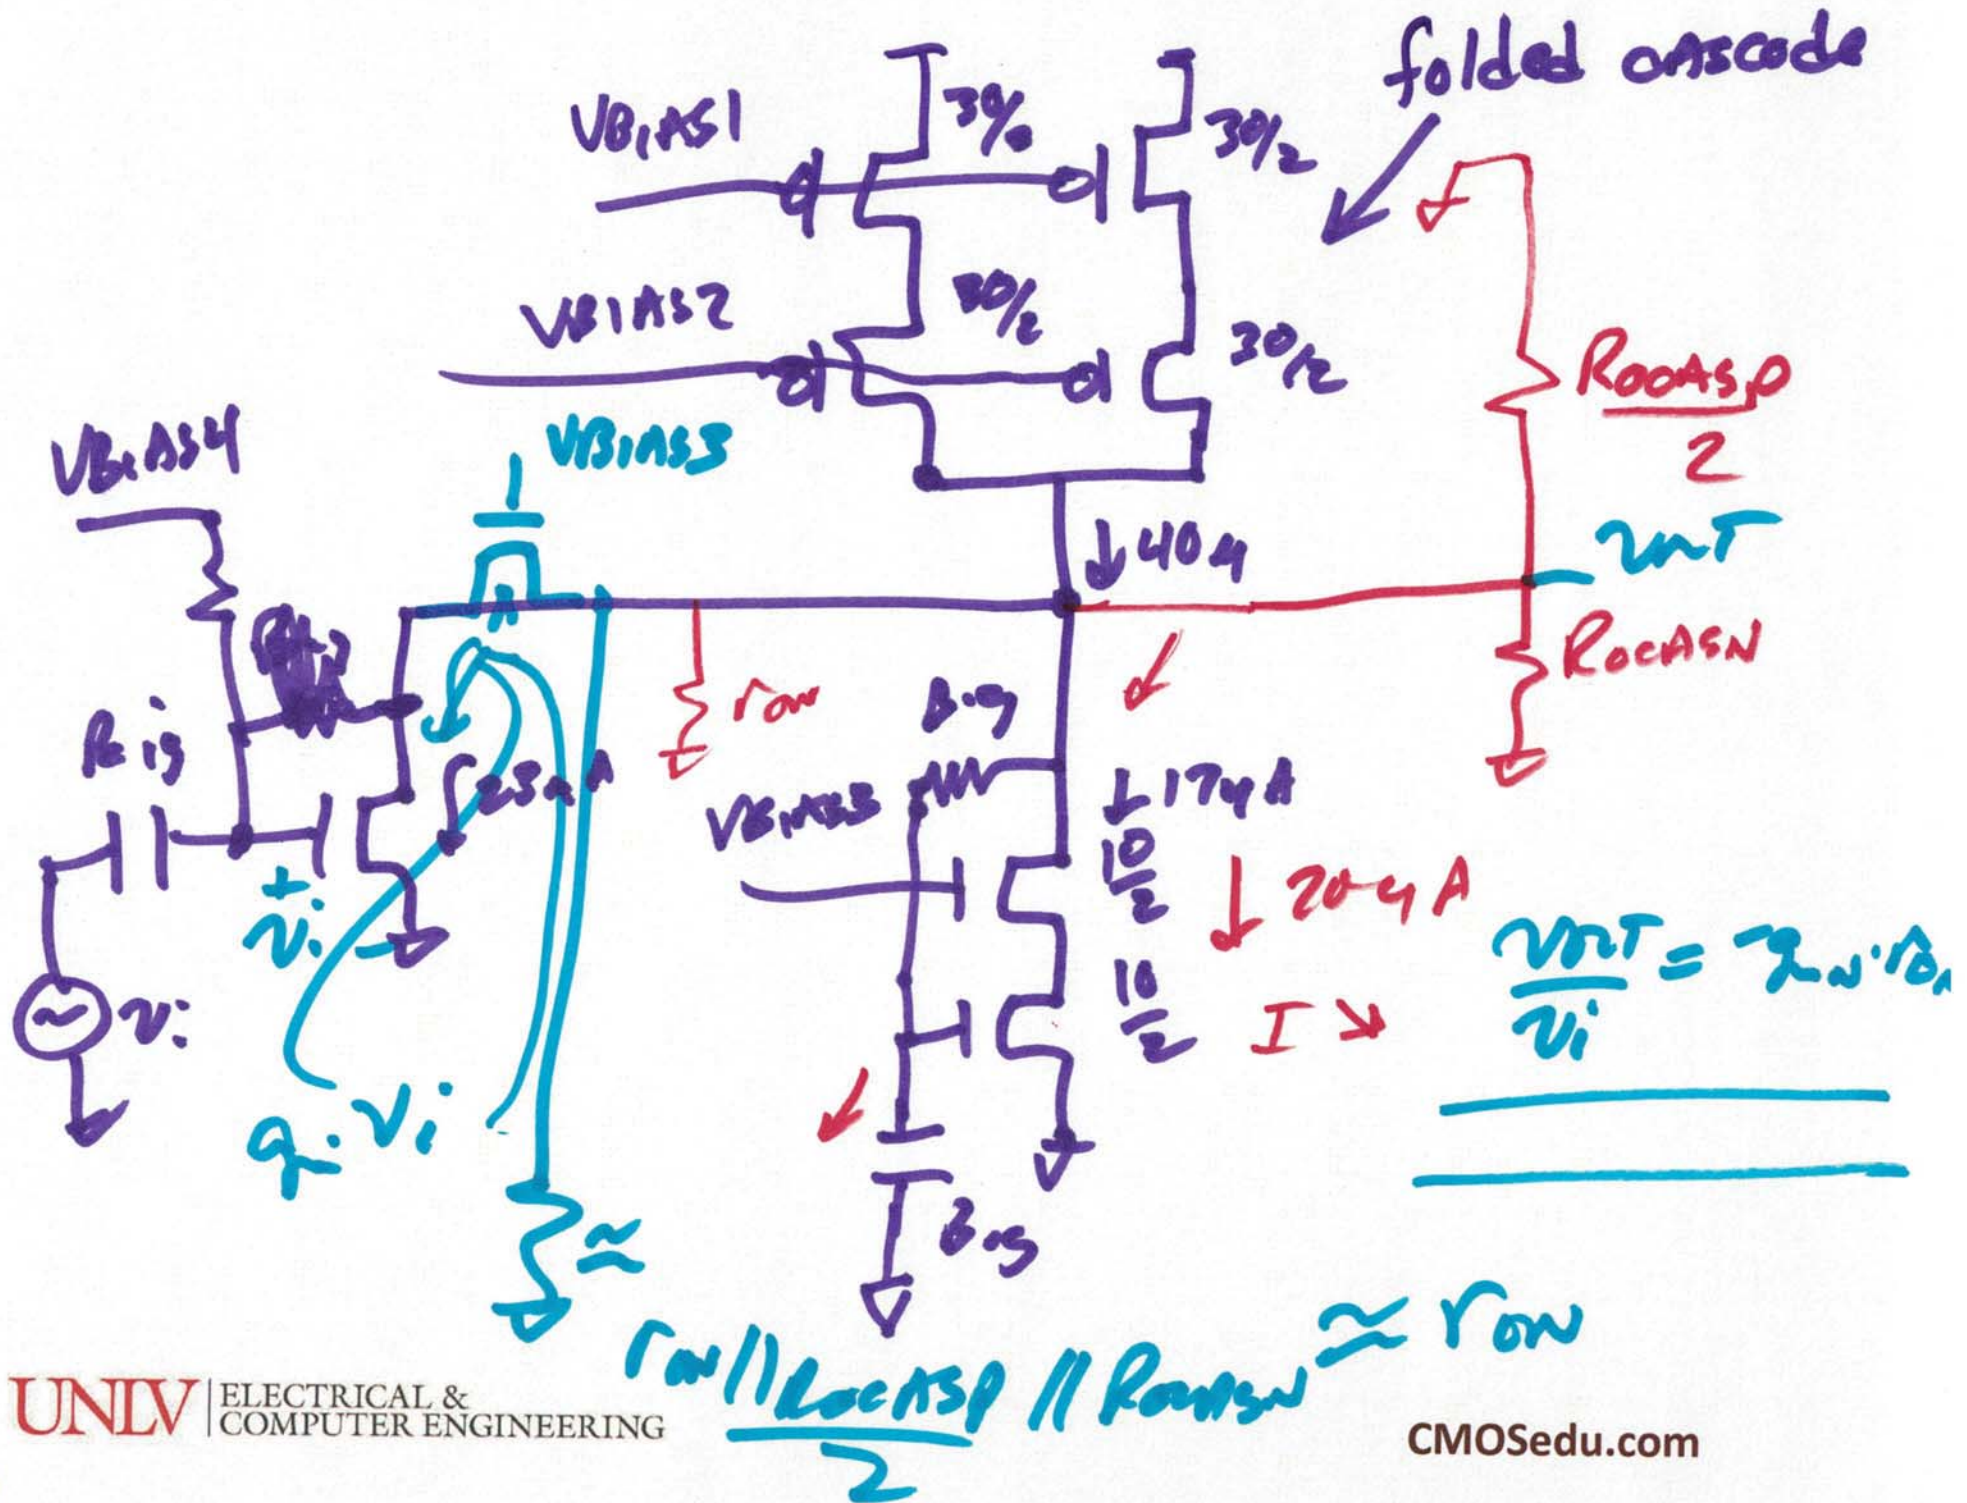 folded cascode
VBIAS1
30/2
30/2
VBIAS2
30/2
30/2
ROCASP
2
VBIAS4
VBIAS3
↓40μ
vout
ROCASN
Big
ron
Big
VBIAS3
↓17μA
23μA
10
2
↓ 20μA
+
vi
-
10
2
I ↘
vout
vi
= -gmN·ron
vi
gmvi
Big
≈
ron||ROCASP||ROCASN ≈ ron
2
UNLV
ELECTRICAL &
COMPUTER ENGINEERING
CMOSedu.com